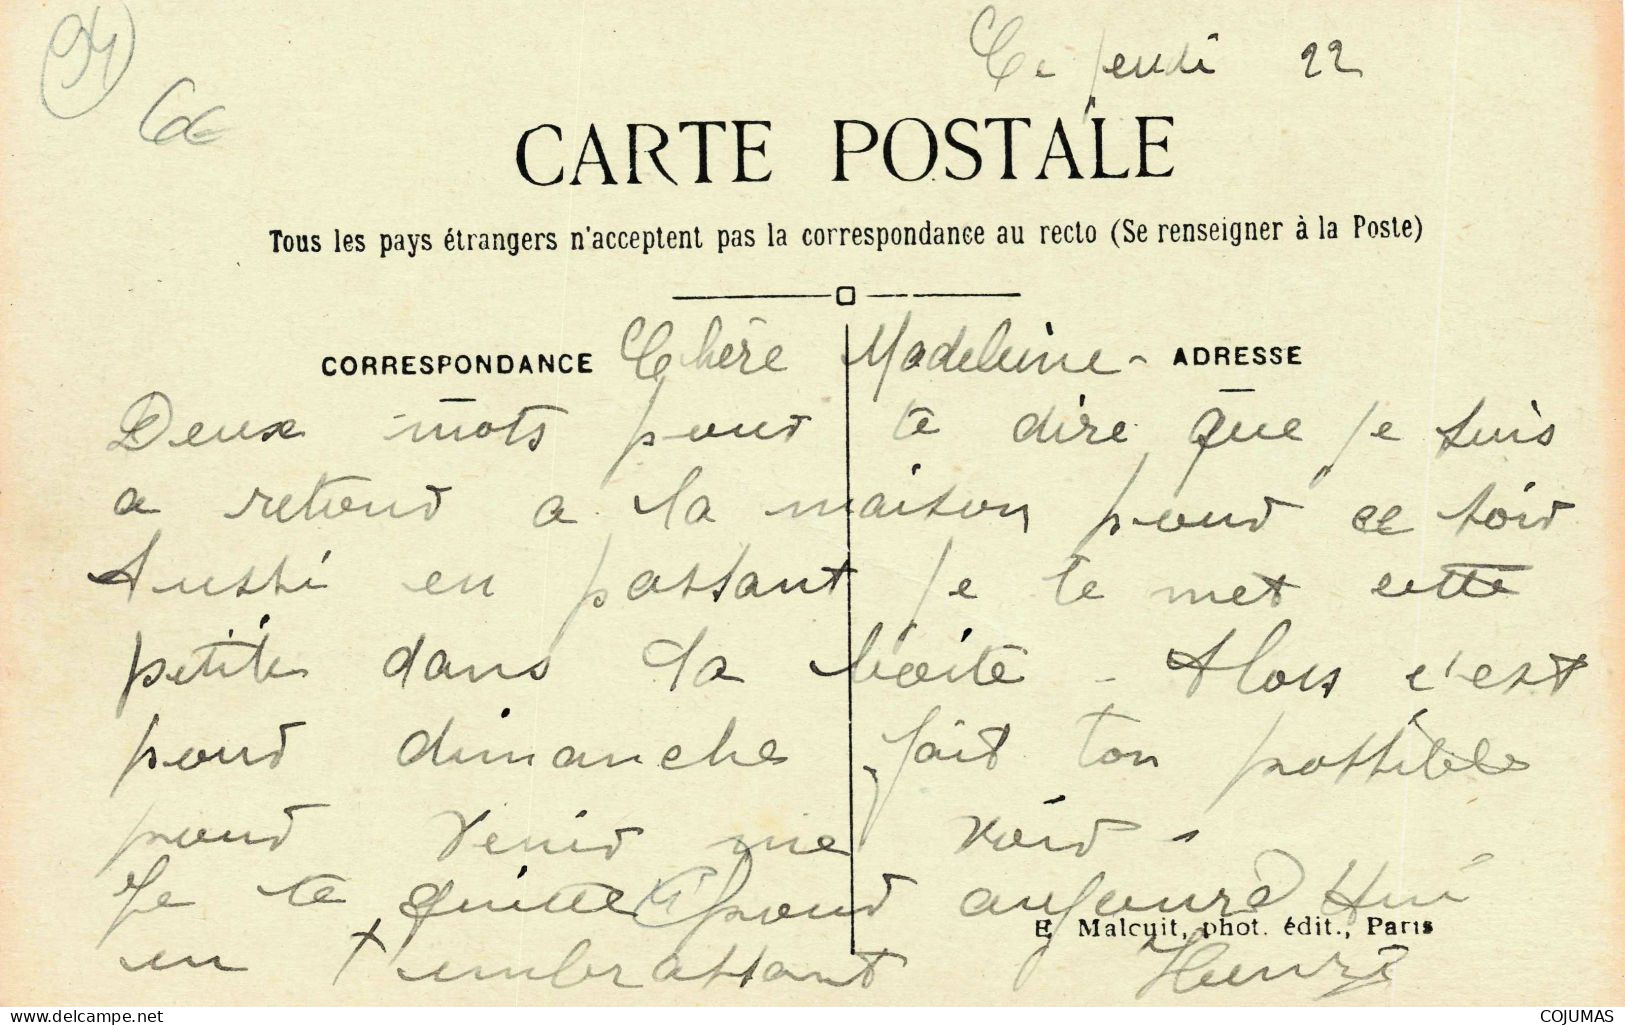 94
6€
Ce Jeudi 22
CARTE POSTALE
Tous les pays étrangers n'acceptent pas la correspondance au recto (Se renseigner à la Poste)
CORRESPONDANCE Chère Madeleine - ADRESSE
Deux mots pour te dire que je suis
a retour a la maison pour ce soir
Aussi en passant je te met cette
petite dans la boite - Alors c'est
pour dimanche fait ton possible
pour venir me voir -
Je te quitte pour aujourd'hui
E. Malcuit, phot. édit., Paris
en t'embrassant Henri
www.delcampe.net
COJUMAS